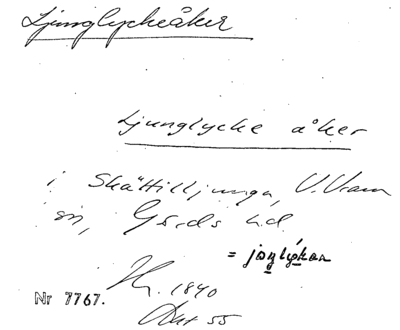 Ljunglyckeåker
Ljunglycke åker
i Skättilljunga, V. Vram
sn, Gärds hd
= joŋlykan
1840
Nr 7767.
Akt 55